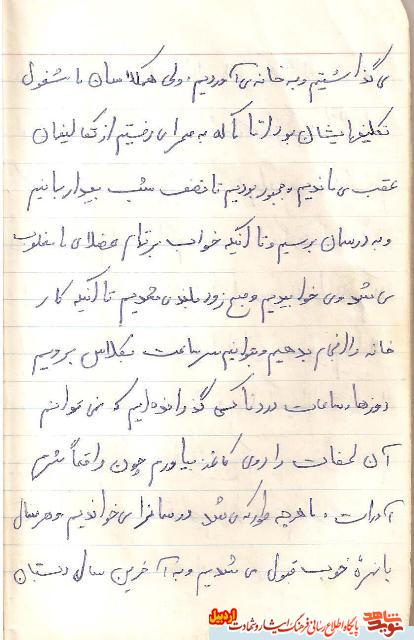 می گذاشتیم وبه خانه می آوردیم، ولی همکلاسان ما مشغول
تکلیفهایشان بودند تا ما که به صحرا می رفتیم از تکالیفمان
عقب می ماندیم و مجبور بودیم تا نصف شب بیدار بمانیم
و به درسمان برسیم و تا آنکه خواب بر تمام عضلای ما مغلوب
می شد و می خوابیدیم و صبح زود بلند می شدیم تا آنکه کار
خانه را انجام بدهیم و بتوانیم سر ساعت بکلاس برویم
روزها و ساعات دردناکی گذرانده ایم که نمی توانم
آن لحظات را روی کاغذ بیاورم چون واقعاً
آور است. ما هرجه طور که می شد درسمانرا می خواندیم و هر سال
با نمرهٔ خوب قبول می شدیم و به آخرین سال دبستان
نوید شاهد
پایگاه اطلاع رسانی فرهنگ ایثار و شهادت
اردبیل